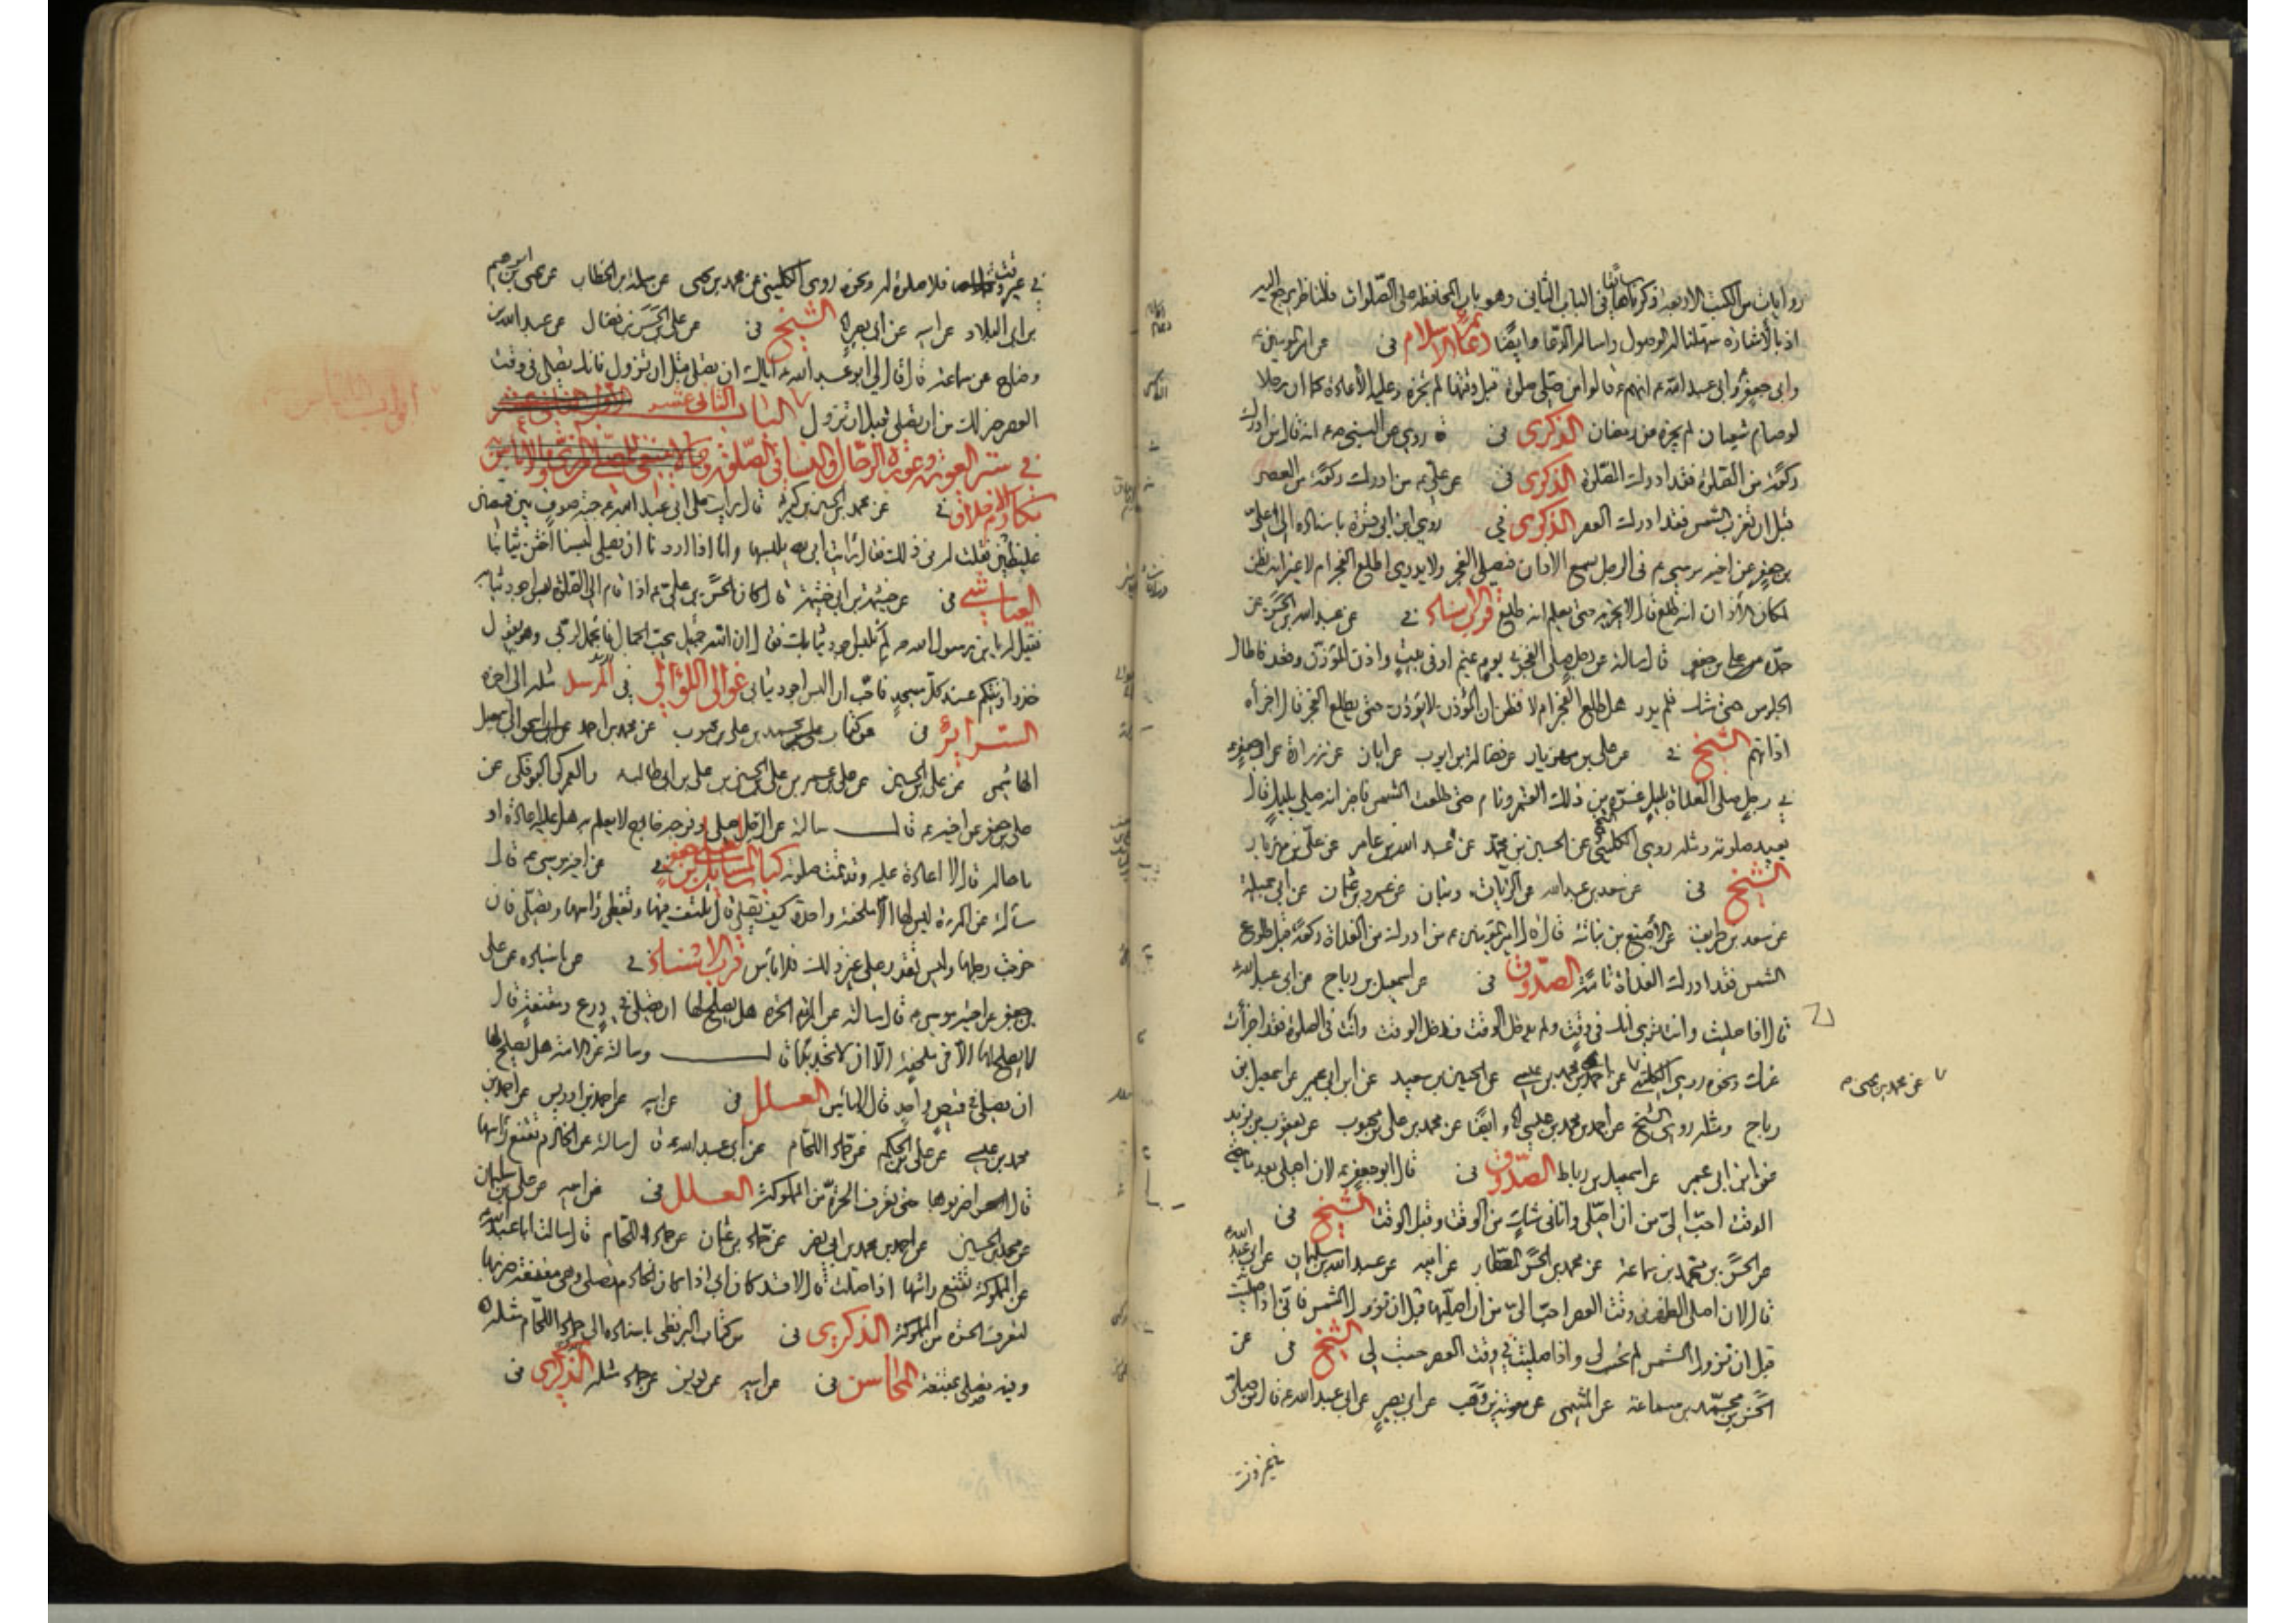 روايات من الكتب الاربعة ذكرناها سابقا في الباب الثاني وهو باب المحافظة على الصلوات فللناظر يرجع اليه
اذ بالاشارة سهلنا له الوصول دعائم الاسلام في عن امير المؤمنين ع
وابي جعفر وابي عبد الله ع انهم ع قالوا من صلى صلوة قبل وقتها لم تجزه وعليه الاعادة كما ان رجلا
لو صام شعبان لم يجزه من رمضان الذكرى في ة روي عن النبي ص انه قال من ادرك
ركعة من الصلوة فقد ادرك الصلوة الذكرى في عن علي ع من ادرك ركعة من العصر
قبل ان تغرب الشمس فقد ادرك العصر الذكرى في روى ابن ابي قرة باسناده الى علي
بن جعفر عن اخيه موسى ع في الرجل يسمع الاذان فيصلي الفجر ولا يدري اطلع الفجر ام لا غير انه يظن
لمكان الاذان انه طلع قال لا يجزيه حتى يعلم انه طلع قرب الاسناد في عن عبد الله بن الحسن عن
جده علي بن جعفر قال سالته عن رجل صلى الفجر في يوم غيم او في بيت واذن المؤذن وقعد فاطال
الجلوس حتى شك فلم يدر هل طلع الفجر ام لا فظن ان المؤذن لا يؤذن حتى يطلع الفجر قال اجزأه
اذانهم الشيخ في عن علي بن مهزيار عن فضالة بن ايوب عن ابان عن زرارة عن ابي جعفر ع
في رجل صلى الغداة بليل غره من ذلك القمر ونام حتى طلعت الشمس فاخبر انه صلى بليل قال
يعيد صلوته ومثله روى الكليني عن الحسين بن محمد عن عبد الله بن عامر عن علي بن مهزيار
الشيخ في عن سعد بن عبد الله عن الزيات عن عمرو بن عثمان عن ابي جميلة
عن سعد بن طريف عن الاصبغ بن نباتة قال قال امير المؤمنين ع من ادرك من الغداة ركعة قبل طلوع
الشمس فقد ادرك الغداة تامة الصدوق في عن اسمعيل بن رباح عن ابي عبد الله ع
قال اذا صليت وانت ترى انك في وقت ولم يدخل الوقت فدخل الوقت وانت في الصلوة فقد اجزأت
عنك ونحوه روى الكليني عن احمد بن محمد بن عيسى عن الحسين بن سعيد عن ابن ابي عمير عن اسمعيل بن
عن محمد بن يحيى م
رباح ومثله روى الشيخ عن احمد بن محمد بن عيسى وايضا عن محمد بن علي بن محبوب عن يعقوب بن يزيد
عن ابن ابي عمير عن اسمعيل بن رباط الصدوق في قال ابو جعفر ع لان اصلي بعد ما مضى
الوقت احب الي من ان اصلي وانا في شك من الوقت وقبل الوقت الشيخ في
عن الحسن بن محمد بن سماعة عن محمد بن الحسن العطار عن ابيه عن عبد الله بن سليمان عن ابي عبد الله ع
قال لان اصلي الظهر في وقت العصر احب الي من ان اصليها قبل ان تزول الشمس فاني اذا صليت
قبل ان تزول الشمس لم تحسب لي واذا صليت في وقت العصر حسبت لي الشيخ في عن
الحسن بن محمد بن سماعة عن الميثمي عن معوية بن وهب عن ابي بصير عن ابي عبد الله ع قال من صلى
في غير وقت
في غير وقت فلا صلوة له ونحوه روى الكليني عن محمد بن يحيى عن سلمة بن الخطاب عن يحيى بن ابرهيم
بن ابي البلاد عن ابيه عن ابي بصير الشيخ في عن علي بن الحسن بن فضال عن عبد الله بن
وضاح عن سماعة قال قال لي ابو عبد الله ع اياك ان تصلي قبل ان تزول فانك تصلي في وقت
العصر خير لك من ان تصلي قبل ان تزول الباب الثاني عشر
في ستر العورة وعورة الرجال والنساء في الصلوة
مكارم الاخلاق في عن محمد بن الحسين بن كثير قال رايت على ابي عبد الله ع جبة صوف بين قميصين
غليظين فقلت له في ذلك فقال رايت ابي ع يلبسها وانا اذا اردنا ان نصلي لبسنا اخشن ثيابنا
العياشي في عن خيثمة بن ابي خيثمة قال كان الحسن بن علي ع اذا قام الى الصلوة لبس اجود ثيابه
فقيل له يا بن رسول الله ص لم تلبس اجود ثيابك فقال ان الله جميل يحب الجمال فاتجمل لربي وهو يقول
خذوا زينتكم عند كل مسجد فاحب ان البس اجود ثيابي غوالي اللؤالي في المرسل مثله الى اخره
السرائر في من كتاب محمد بن علي بن محبوب عن محمد بن احمد
الهاشمي عن علي بن الحسين عن علي بن عمر بن علي بن الحسين بن علي بن ابي طالب والعمركي البوفكي عن
علي بن جعفر عن اخيه ع قال سالته عن الرجل صلى وفرجه خارج لا يعلم به هل عليه اعادة او
ما حاله قال لا اعادة عليه وقد تمت صلوته كتاب المسائل لعلي بن جعفر في عن اخيه موسى ع قال
سألته عن المرءة ليس لها الا ملحفة واحدة كيف تصلي قال تلتف فيها وتغطي راسها وتصلي فان
خرجت رجلها وليس تقدر على غير ذلك فلا باس قرب الاسناد في عن باسناده عن علي
بن جعفر عن اخيه موسى ع قال سالته عن المرءة الحرة هل يصلح لها ان تصلي في درع ومقنعة قال
لا يصلح لها الا في ملحفة الا ان لا تجد بدا قال وسالته عن الامة هل يصلح لها
ان تصلي في قميص واحد قال لا باس العلل في عن ابيه عن احمد بن ادريس عن احمد بن
محمد بن عيسى عن علي بن الحكم عن حماد اللحام عن ابي عبد الله ع قال سالته عن الخادم تقنع راسها
قال اضربوها حتى تعرف الحرة من المملوكة العلل في عن ابيه عن علي بن سليمان
عن محمد بن الحسين عن احمد بن محمد بن ابي نصر عن حماد بن عثمان عن حماد اللحام قال سالت ابا عبد الله ع
عن المملوكة تقنع راسها اذا صلت قال لا قد كان ابي اذا راى الخادم تصلي وهي مقنعة ضربها
لتعرف الحرة من المملوكة الذكرى في من كتاب البزنطي باسناده الى حماد اللحام مثله
وفيه تصلي بمقنعة المحاسن في عن ابيه عن يونس عن حماد مثله الذكرى في